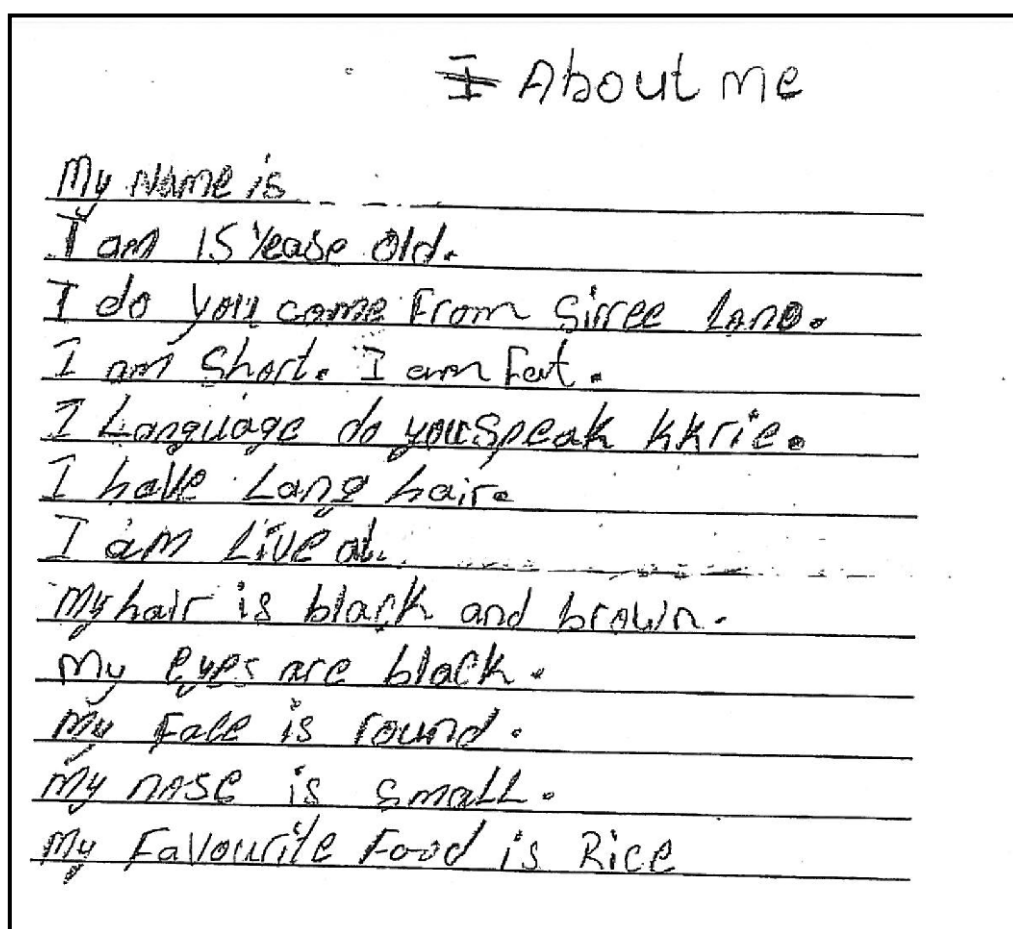 I About me
My Name is
I am 15 Yease old.
I do you come From Sirree Lano.
I am Short. I am Fat.
I Language do you Speak kkrie.
I have Lang hair.
I am Live at.
My hair is black and brown.
My eyes are black.
My Face is round.
My nose is small.
My Favourite Food is Rice